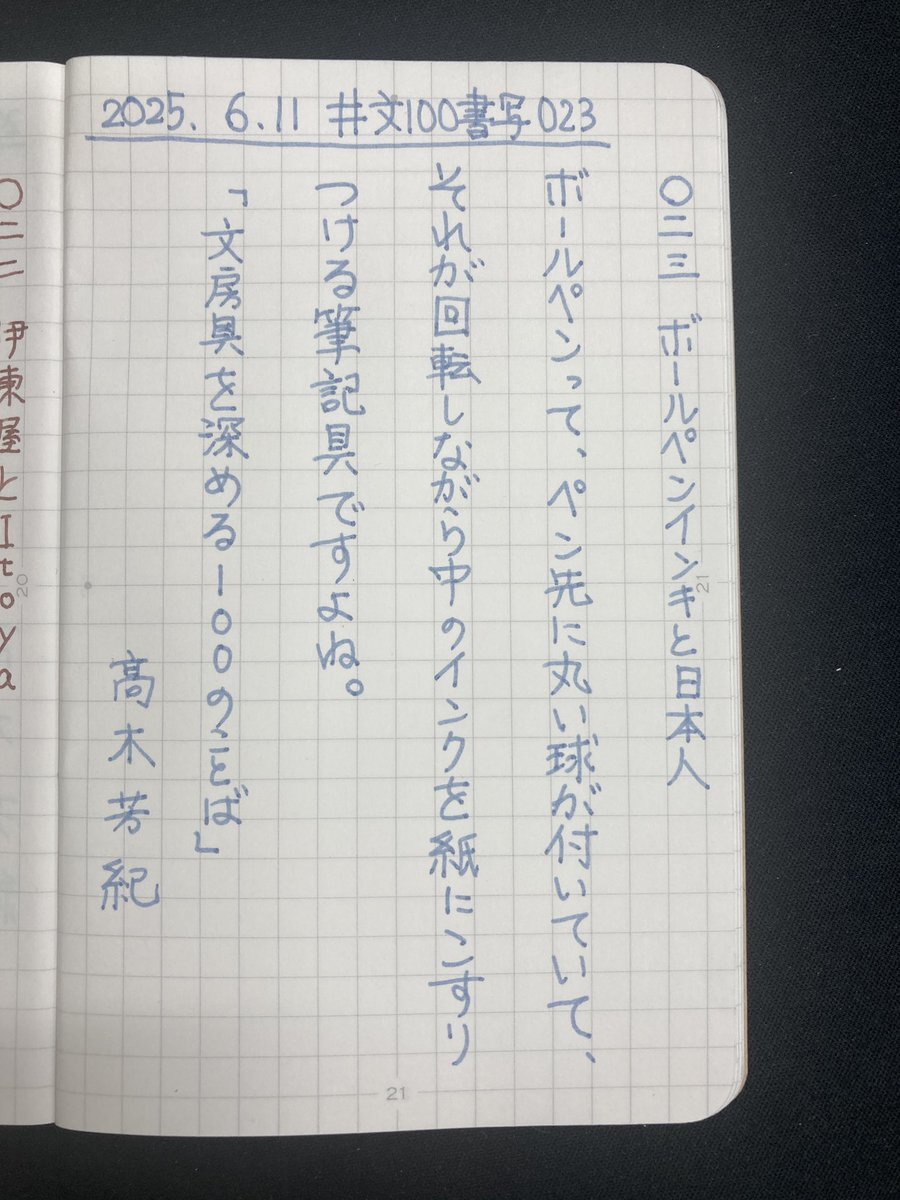 2025.6.11 #文100書写023
〇二三 ボールペンインキと日本人
ボールペンって、ペン先に丸い球が付いていて、
それが回転しながら中のインクを紙にこすり
つける筆記具ですよね。
「文房具を深める100のことば」
高木芳紀
21
21
〇二二 伊東屋とItoya
20